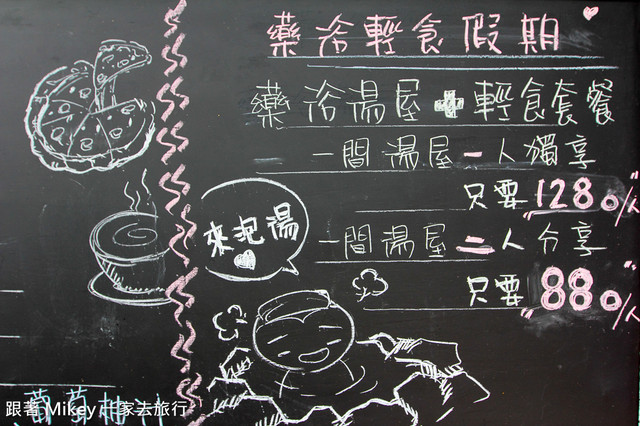 藥浴輕食假期
藥浴湯屋+輕食套餐
一間湯屋一人獨享
只要1280/人
一間湯屋二人分享
只要880/人
來泡湯
葡萄柚汁
跟著 Mikey 一家去旅行